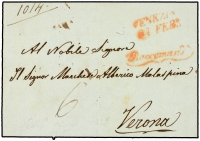 1014.
VENEZIA
Al Nobile Signore
Il Signor Marchese Alberico Malaspina
6
Verona